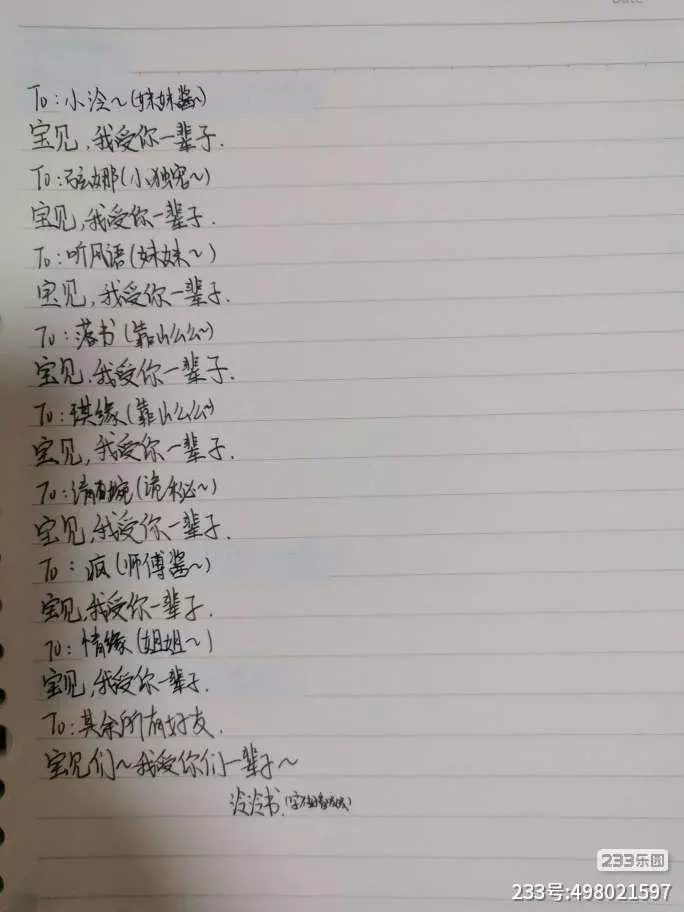 To:小泠~(妹妹酱~)
宝见,我爱你一辈子.
To:弦娜(小独宠~)
宝见,我爱你一辈子.
To:听风语(妹妹~)
宝见,我爱你一辈子.
To:落书(靠山么么~)
宝见,我爱你一辈子.
To:琪缘(靠山么么~)
宝见,我爱你一辈子.
To:清(诡秘~)
宝见,我爱你一辈子.
To:疯(师傅酱~)
宝见,我爱你一辈子.
To:情缘(姐姐~)
宝见,我爱你一辈子.
To:其余所有好友.
宝见们~我爱你们一辈子~
泠泠书.
233乐园
233号:498021597